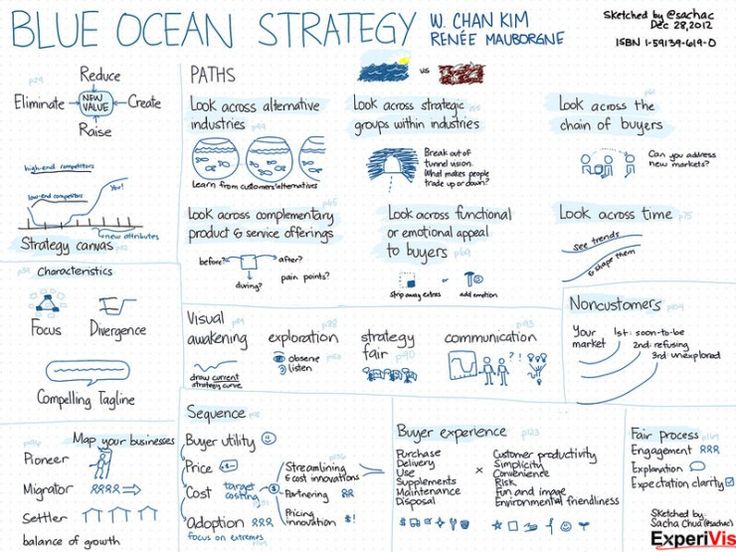 BLUE OCEAN STRATEGY
W. CHAN KIM
RENÉE MAUBORGNE
Sketched by @sachac
Dec 28, 2012
ISBN 1-59139-619-0
p29
Reduce
Eliminate
NEW
VALUE
Create
Raise
high-end competitors
low-end competitors
You!
new attributes
Strategy canvas
Characteristics
Focus
Divergence
Compelling Tagline
Map your businesses
Pioneer
Migrator
Settler
balance of growth
PATHS
vs
Look across alternative
industries
p49
Learn from customers/alternatives
Look across strategic
groups within industries
Break out of
tunnel vision.
What makes people
trade up or down?
Look across the
chain of buyers
Can you address
new markets?
Look across complementary
product & service offerings
p65
before?
after?
during?
pain points?
Look across functional
or emotional appeal
to buyers
p69
strip away extras
add emotion
Look across time
p75
See trends
& shape them
Visual
awakening
draw current
strategy curve
exploration
observe
listen
strategy
fair
p90
communication
p93
?!
Noncustomers
p104
Your
market
1st: soon-to-be
2nd: refusing
3rd: unexplored
Sequence
Buyer utility
Price
$
Cost
target
costing
Adoption
focus on extremes
Streamlining
& cost innovations
Partnering
Pricing
innovation
$!
Buyer experience
p123
Purchase
Delivery
Use
Supplements
Maintenance
Disposal
×
Customer productivity
Simplicity
Convenience
Risk
Fun and image
Environmental friendliness
Fair process
Engagement
Explanation
Expectation clarity
Sketched by:
Sacha Chua (@sachac)
ExperiVis